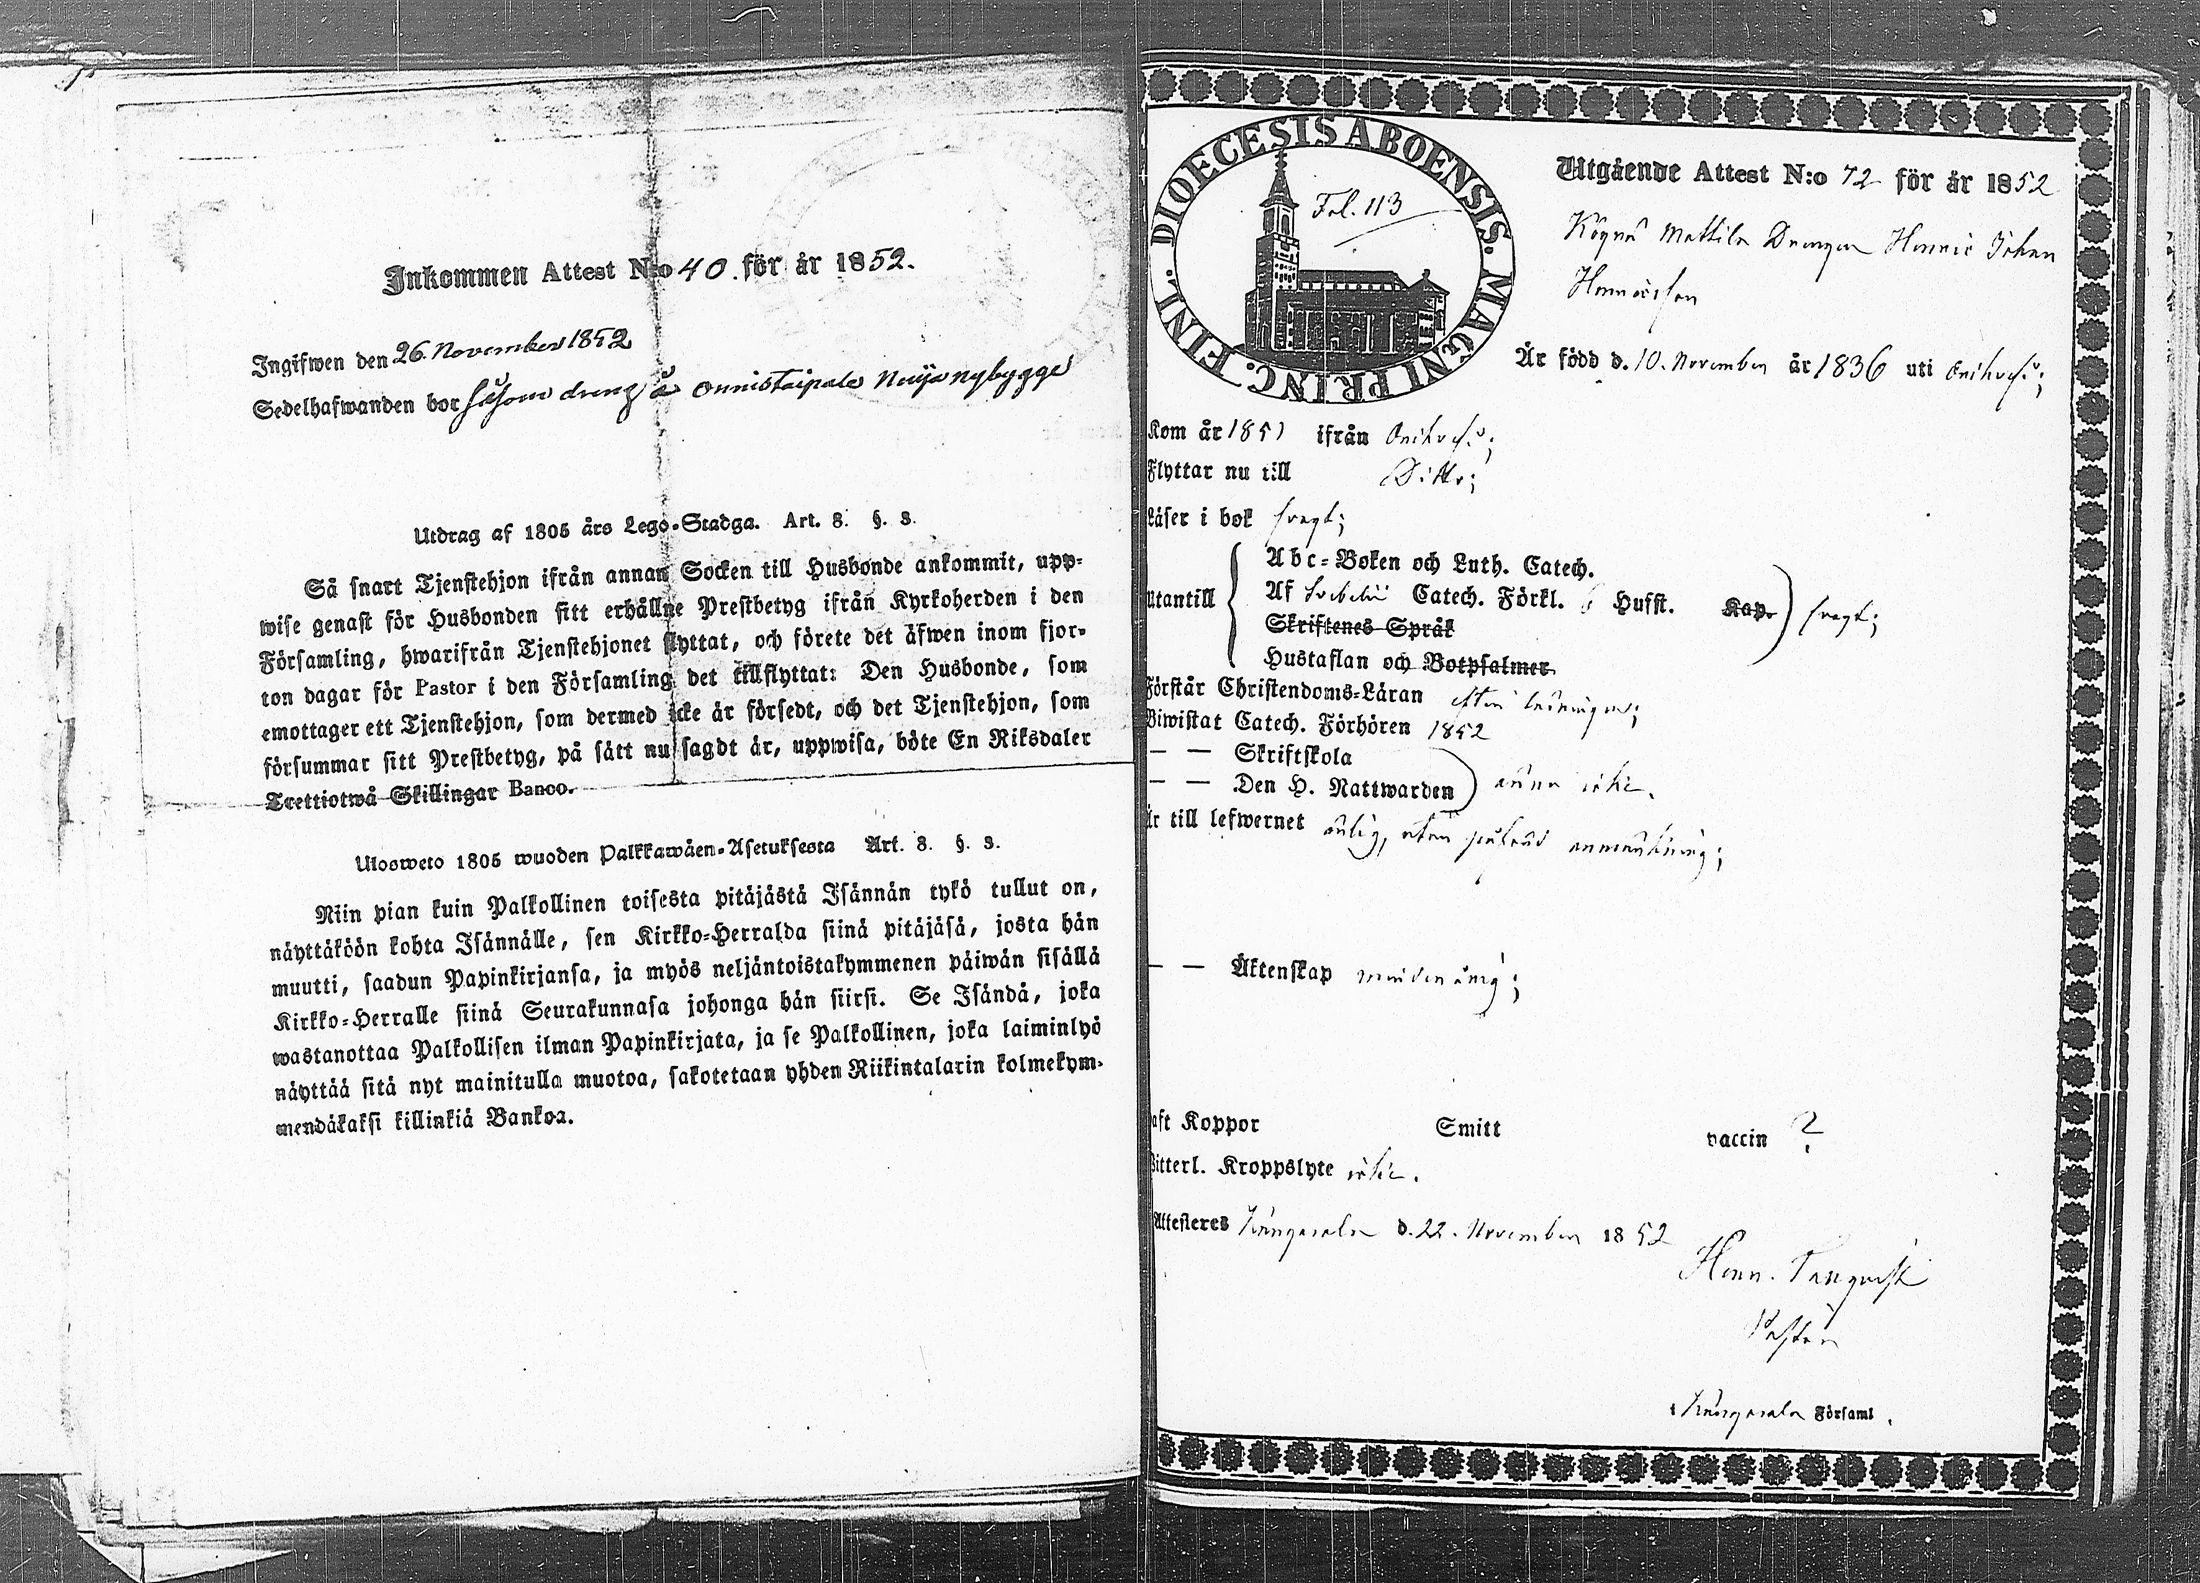 Inkommen Attest N:o 40. för år 1852.
Ingifwen den 26 November 1852
Sedelhafwanden bor såsom dreng å Onnistaipale Neuja nybygge
Utdrag af 1805 års Lego-Stadga. Art. 8. §. 3.
Så snart Tjenstehjon ifrån annan Socken till Husbonde ankommit, upp-
wise genast för Husbonden sitt erhållne Prestbetyg ifrån Kyrkoherden i den
Församling, hwarifrån Tjenstehjonet flyttat, och förete det äfwen inom fjor-
ton dagar för Pastor i den Församling det tillflyttat: Den Husbonde, som
emottager ett Tjenstehjon, som dermed icke är försedt, och det Tjenstehjon, som
försummar sitt Prestbetyg, på sätt nu sagdt är, uppwisa, böte En Riksdaler
Trettiotwå Skillingar Banco.
Ulosweto 1805 wuoden Palkkawäen-Asetuksesta Art. 8. §. 3.
Niin pian kuin Palkollinen toisesta pitäjästä Isännän tykö tullut on,
näyttäköön kohta Isännälle, sen Kirkko-Herralda siinä pitäjäsä, josta hän
muutti, saadun Papinkirjansa, ja myös neljäntoistakymmenen päiwän sisällä
Kirkko-Herralle siinä Seurakunnasa johonga hän siirsi. Se Isändä, joka
wastanottaa Palkollisen ilman Papinkirjata, ja se Palkollinen, joka laiminlyö
näyttää sitä nyt mainitulla muotoa, sakotetaan yhden Riikintalarin kolmekym-
mendäkaksi killinkiä Bankoa.
DIOECESIS ABOENSIS. MAGNI PRINC. FINL.
Fol. 113
Utgående Attest N:o 72 för år 1852
Mattila Drengen Henric Johan
Henricsson
Är född d. 10. November år 1836 uti Orihvesi;
Kom år 1851 ifrån Orihvesi;
Flyttar nu till Ditto;
Läser i bok svagt;
Utantill
Abc-Boken och Luth. Catech.
Af Svebelii Catech. Förkl. 6 Hufst. Kap. svagt;
Skriftenes Språk
Hustaflan och Botpsalmer
Förstår Christendoms-Läran efter ledningen;
Biwistat Catech. Förhören 1852
— — Skriftskola
— — Den H. Nattwarden ännu icke.
Är till lefwernet ärlig, utan anmärkning;
— — Äktenskap minderårig;
haft Koppor Smitt vaccin ?
Witterl. Kroppslyte icke.
Attesteres Kangasala d. 22. November 1852
Henr. Tanqvist
Pastor
i Kangasala Församl.